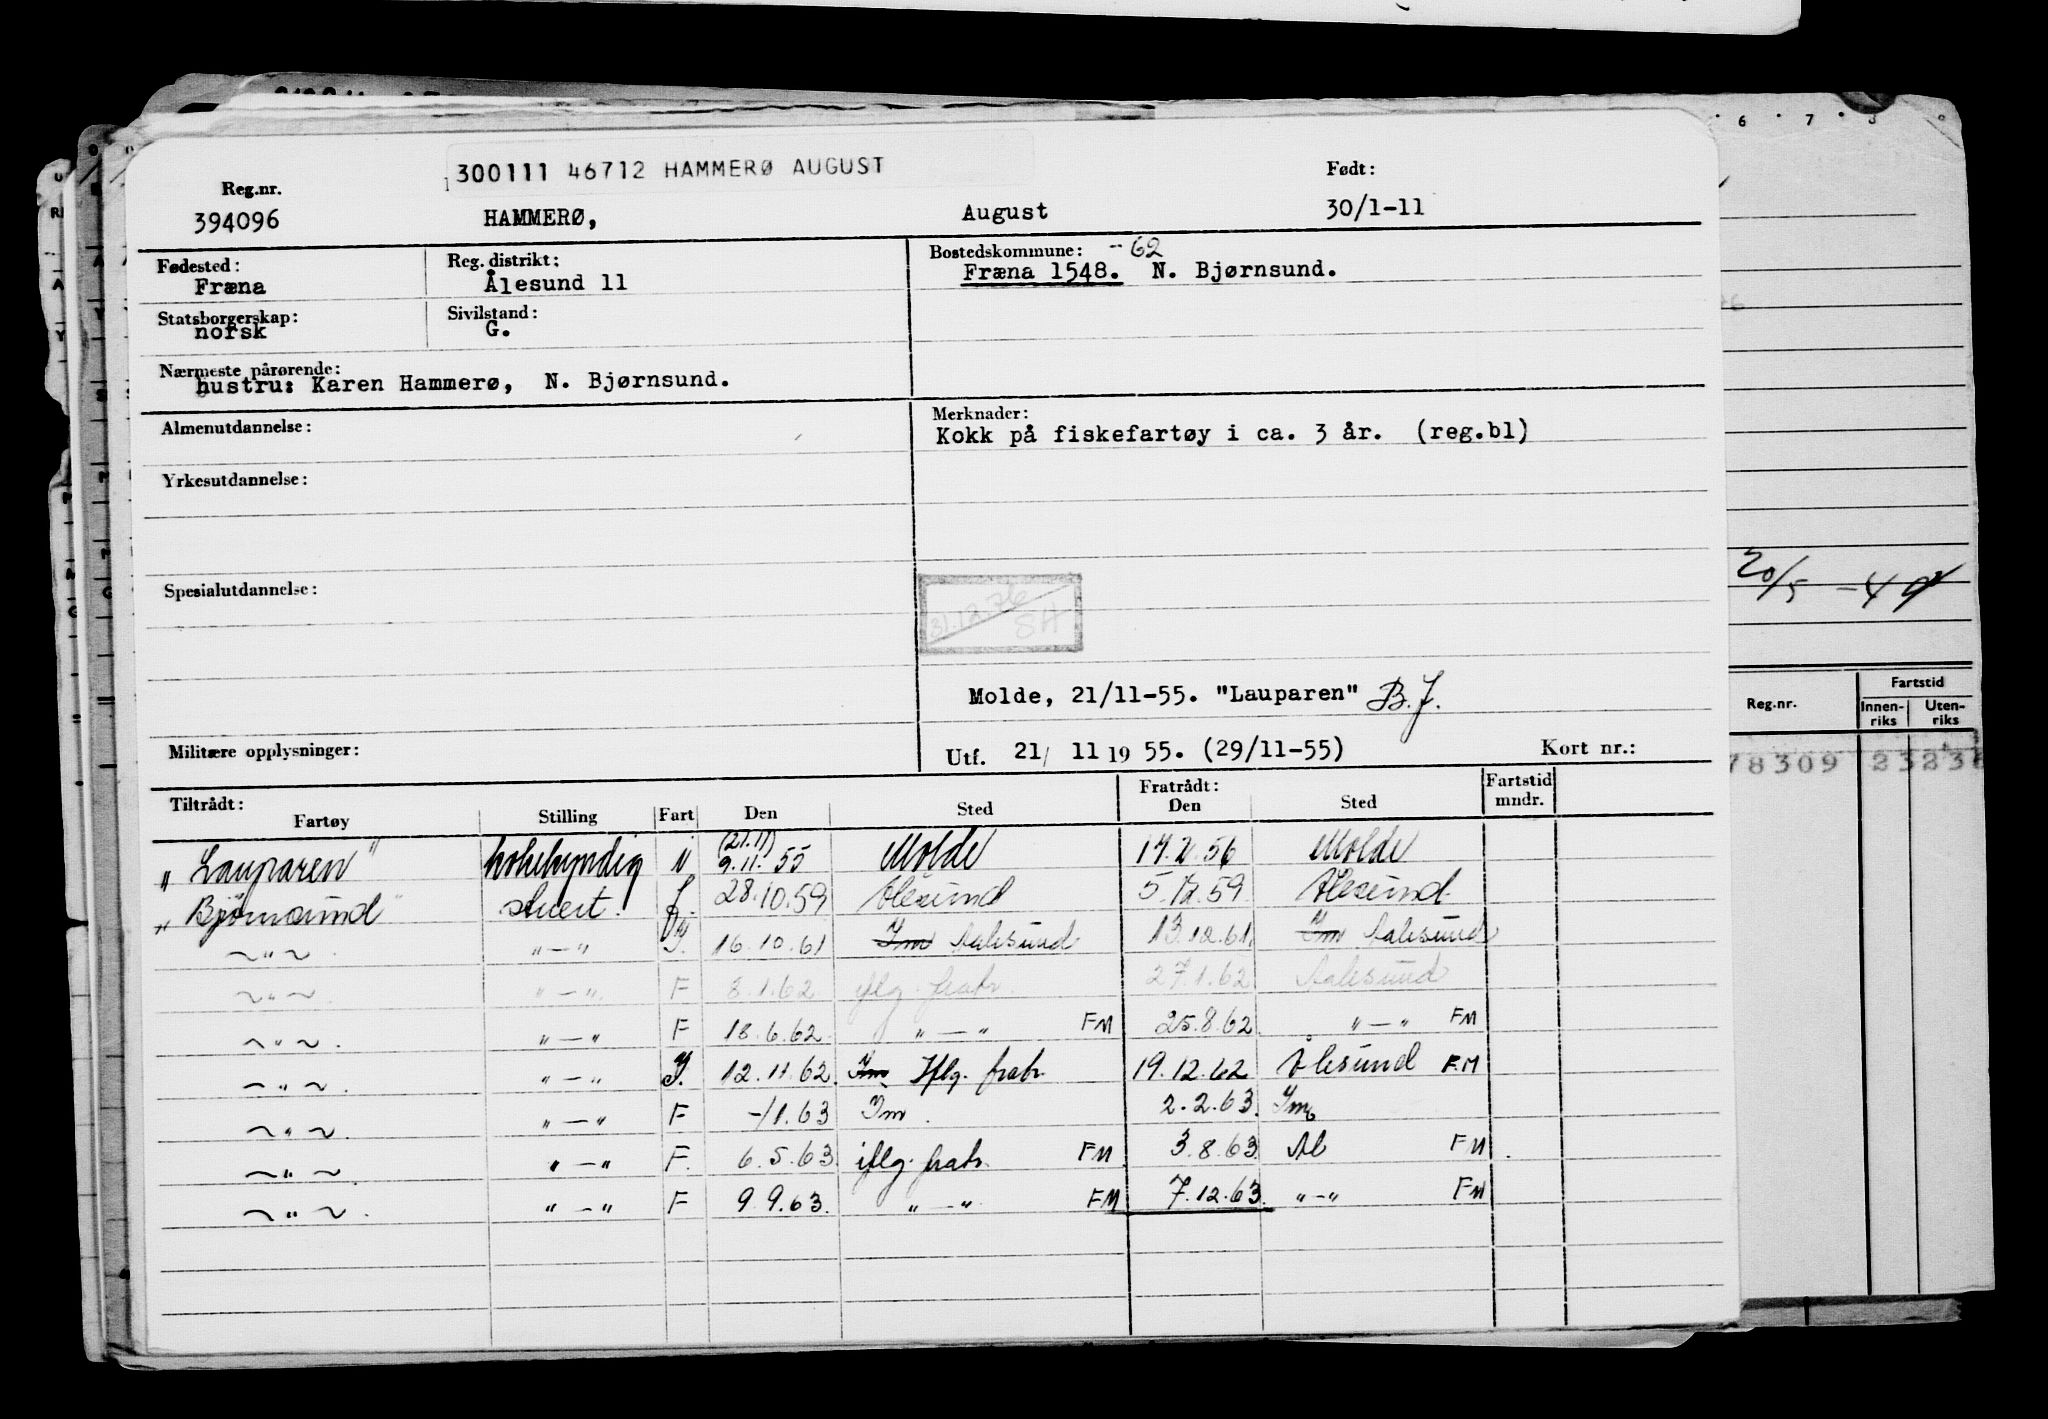 300111 46712 HAMMERØ AUGUST
Reg.nr. Født:
394096 HAMMERØ, August 30/1-11
Fødested: Reg. distrikt: Bostedskommune: -62
Fræna Ålesund 11 Fræna 1548. N. Bjørnsund.
Statsborgerskap: Sivilstand:
norsk G.
Nærmeste pårørende:
hustru: Karen Hammerø, N. Bjørnsund.
Almenutdannelse: Merknader:
Kokk på fiskefartøy i ca. 3 år. (reg.bl)
Yrkesutdannelse:
Spesialutdannelse:
31.12.76
SH
Molde, 21/11-55. "Lauparen" B.J.
Militære opplysninger: Utf. 21/ 11 19 55. (29/11-55) Kort nr.:
Tiltrådt: Fratrådt: Fartstid
Fartøy Stilling Fart Den Sted Den Sted mndr.
(21.11)
"Lauparen" kokekyndig N 9.11.55 Molde 56 Molde
"Bjørnsund" stuert. 28.10.59 Ålesund 59 Ålesund
~"~ "-" 16.10.61 Im Aalesund 13.12.61. Im Aalesund
~"~ "-" F 8.1.62 iflg. fratr. 27.1.62 Aalesund
~"~ "-" F 18.6.62 "-" FM 25.8.62 "-" FM
~"~ "-" 12.11.62 Im Iflg. fratr. 19.12.62 Ålesund F.M
~"~ "-" F -/1.63 Im 2.2.63. Im
~"~ "-" F. 6.5.63 iflg. fratr. FM 3.8.63 Ål FM
~"~ "-" F 9.9.63. "-" FM 7.12.63. "-" FM
6 7
20/5 -49
Reg.nr. Fartstid
Innen-riks Uten-riks
78309 2323